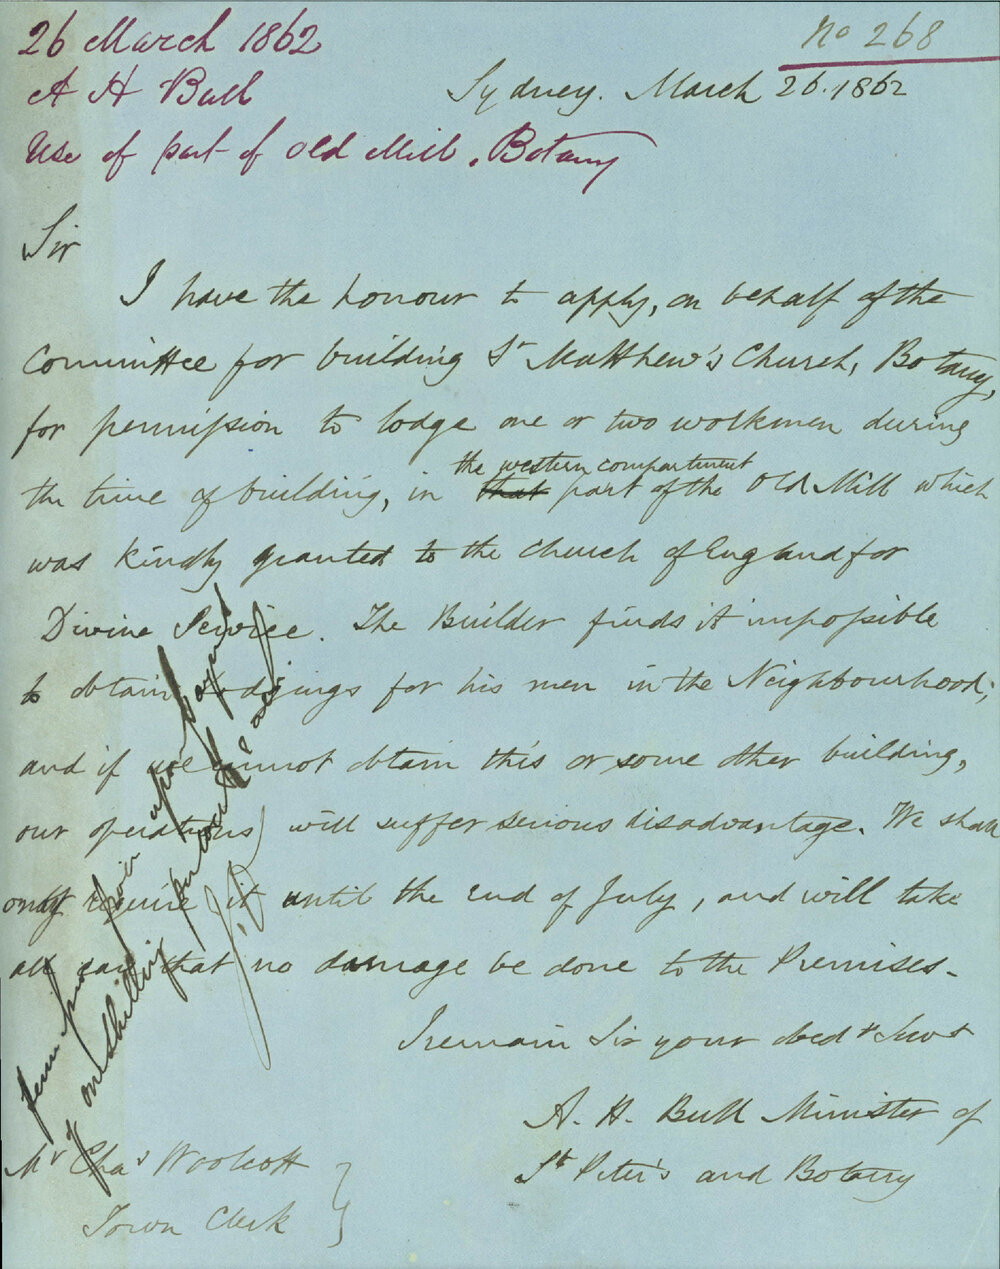 26 March 1862
A H Bull
Use of part of Old Mill. Botany
No 268
Sydney. March 26. 1862
Sir
I have the honour to apply, on behalf of the
Committee for building St Matthew's Church, Botany,
for permission to lodge one or two workmen during
the western compartment
the time of building, in that part of the Old Mill which
was kindly granted to the Church of England for
Divine Service. The Builder finds it impossible
to obtain lodgings for his men in the Neighbourhood;
and if we cannot obtain this or some other building,
our operations will suffer serious disadvantage. We shall
only require it until the end of July, and will take
all care that no damage be done to the Premises.
I remain Sir your obedt Servt
A. H. Bull Minister of
St Peter's and Botany
Mr Chas Woolcott
Town Clerk
permission given upon payment
of one shilling per month
J.D